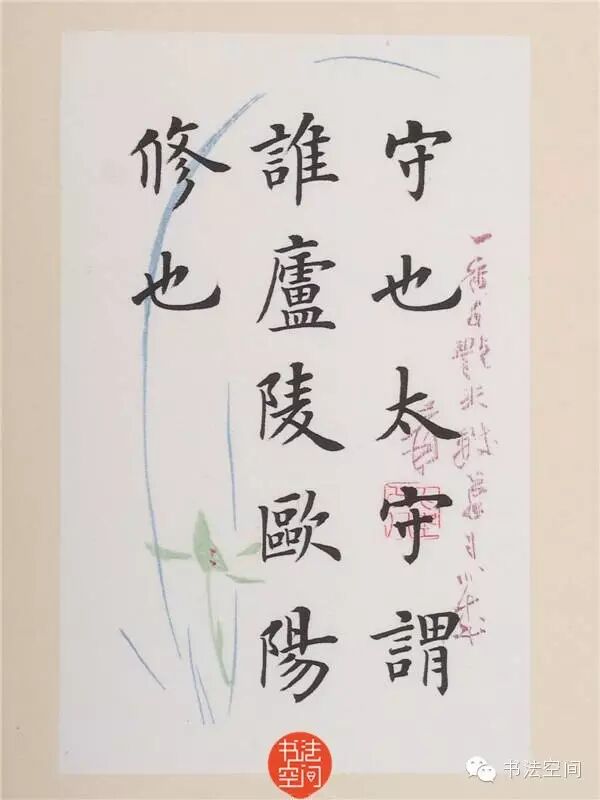 守也太守謂
誰廬陵歐陽
修也
书法
空间
书法空间